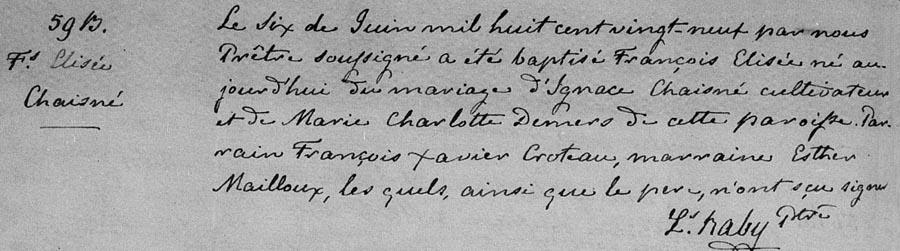 59B.
Fs. Elisée
Chaisné
Le six de Juin mil huit cent vingt-neuf par nous
Prêtre soussigné a été baptisé François Elisée né au-
jourd'hui du mariage d'Ignace Chaisné cultivateur
et de Marie Charlotte Demers de cette paroisse. Par-
rain François Xavier Croteau, marraine Esther
Mailloux, les quels, ainsi que le pere, n'ont sçu signer
Ls. Raby Ptre